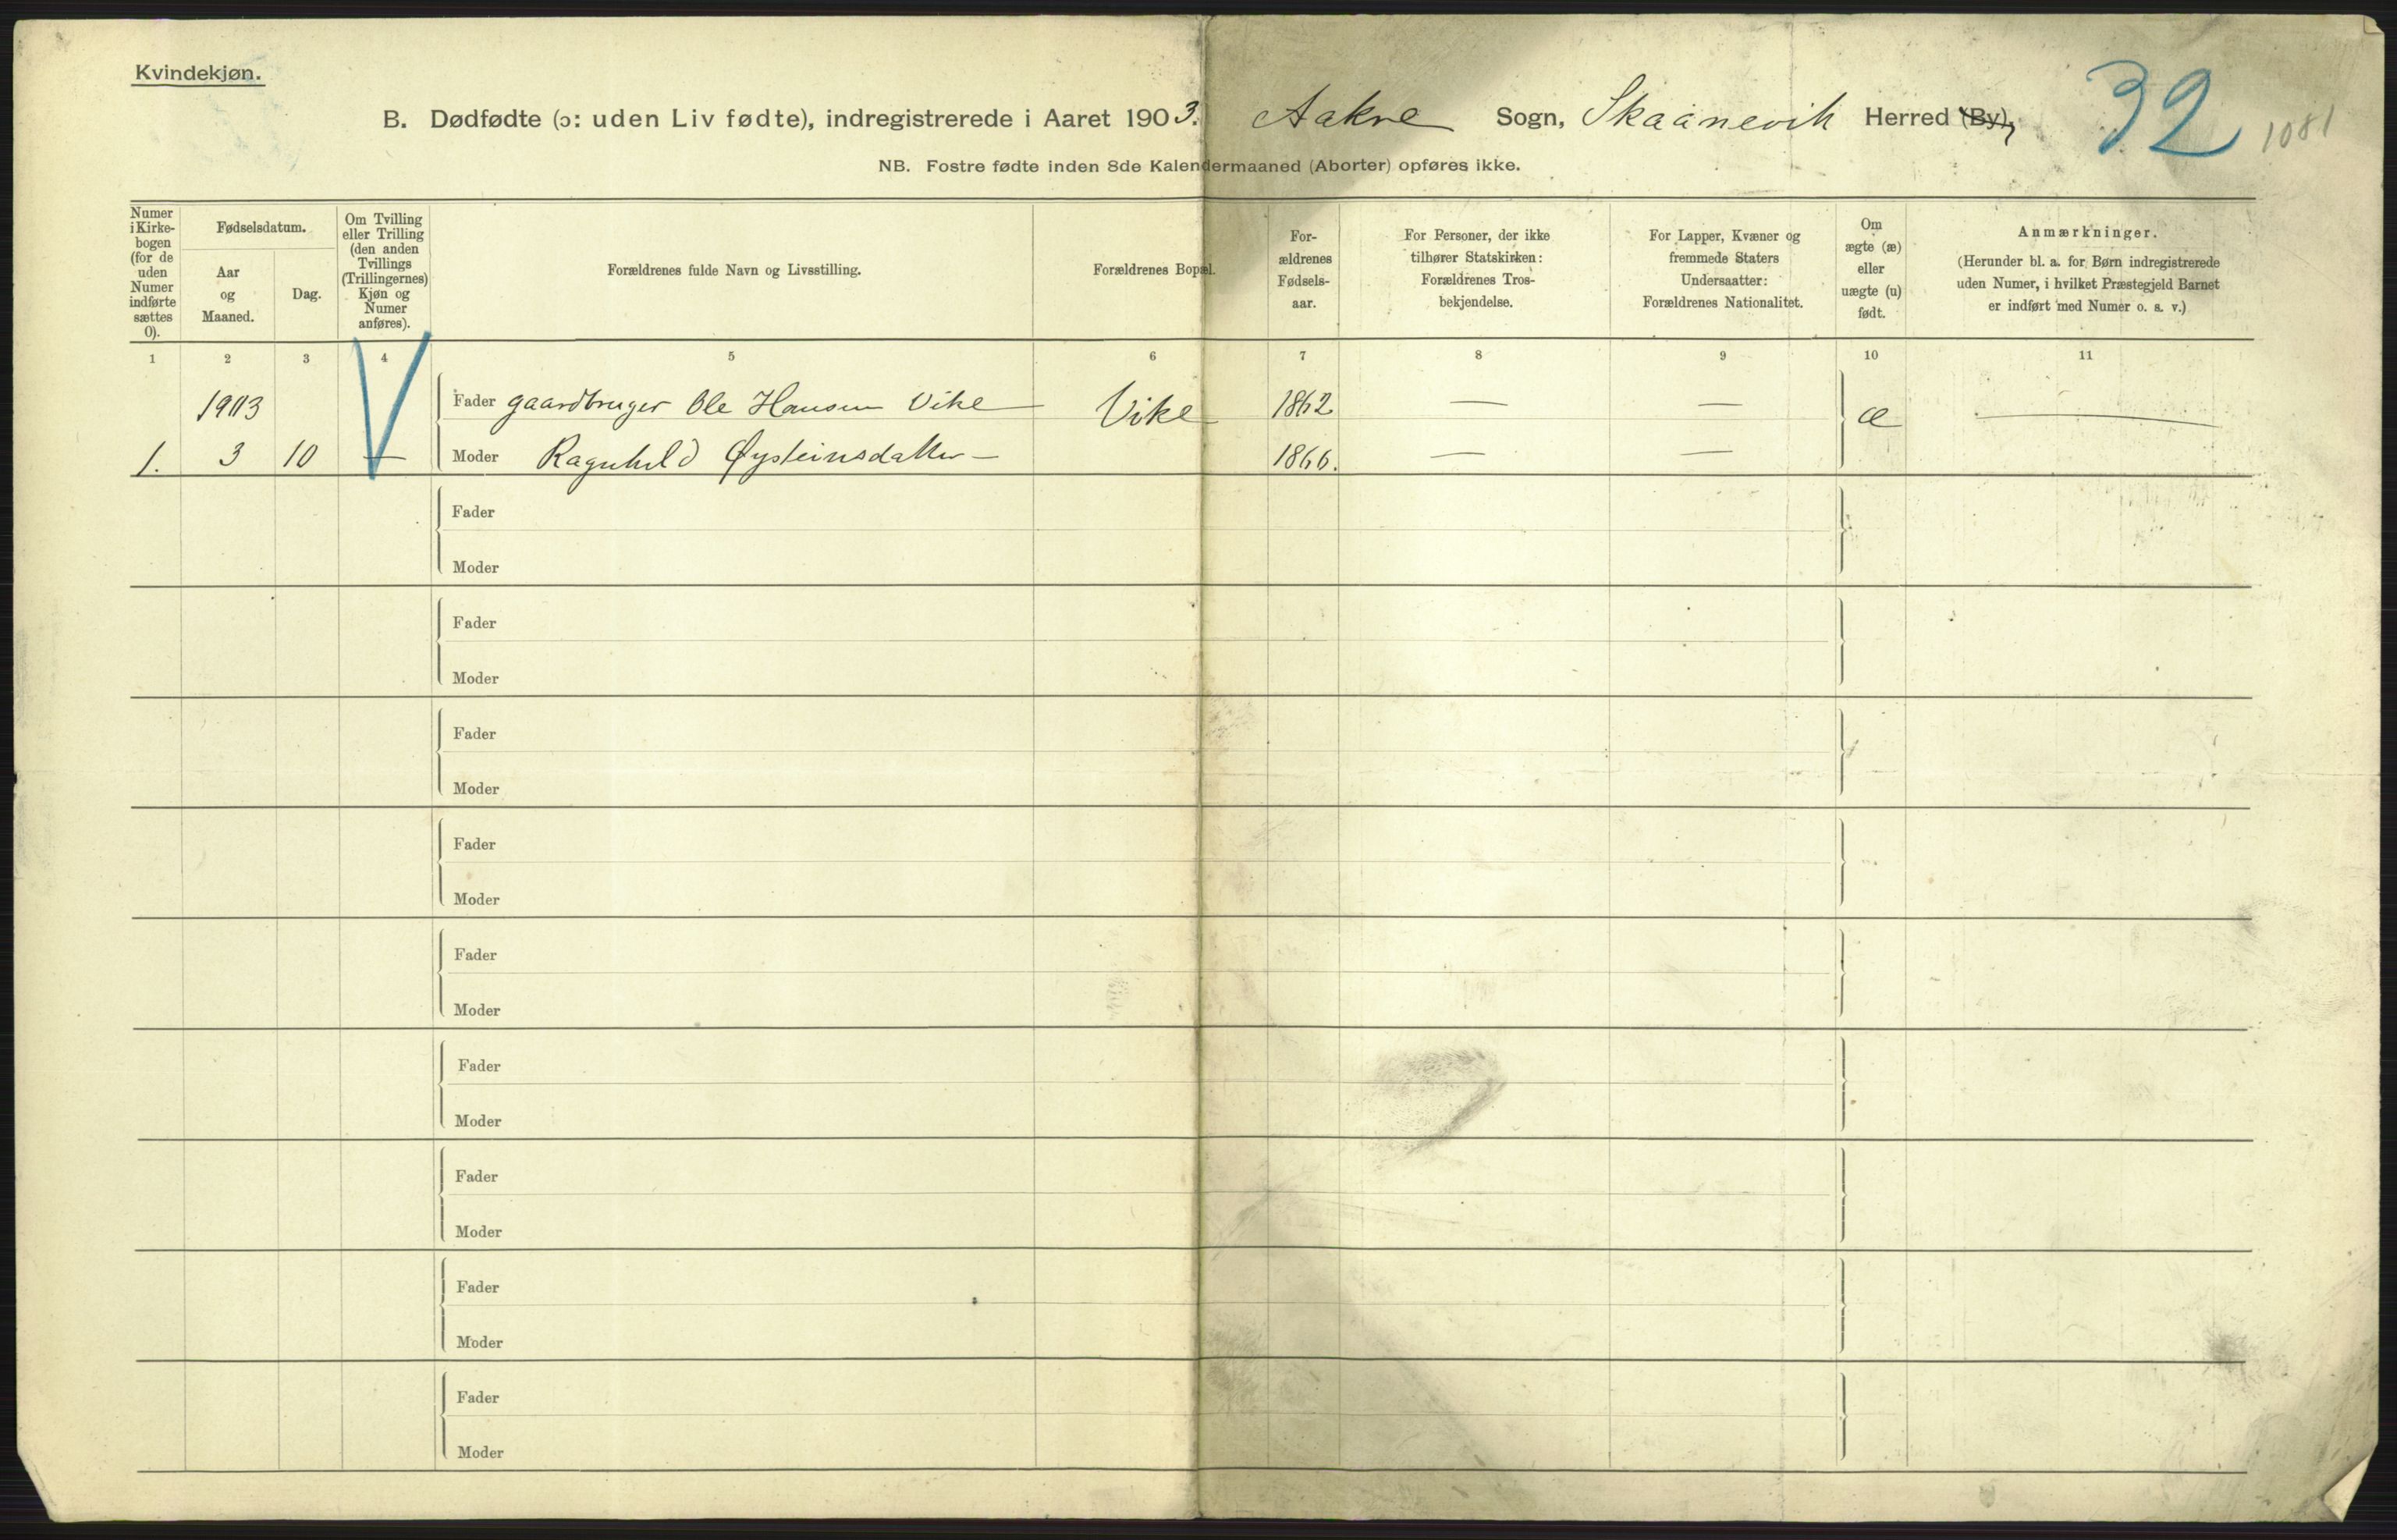 Kvindekjøn.
B. Dødfødte (ɔ: uden Liv fødte), indregistrerede i Aaret 1903. Aakre Sogn, Skaanevik Herred (By), 32 1081
NB. Fostre fødte inden 8de Kalendermaaned (Aborter) opføres ikke.
Numer i Kirke-bogen (for de uden Numer indførte sættes 0).
Fødselsdatum.
Aar og Maaned.
Dag.
Om Tvilling eller Trilling (den anden Tvillings (Trillingernes) Kjøn og Numer anføres).
Forældrenes fulde Navn og Livsstilling.
Forældrenes Bopæl.
For-ældrenes Fødsels-aar.
For Personer, der ikke tilhører Statskirken: Forældrenes Tros-bekjendelse.
For Lapper, Kvæner og fremmede Staters Undersaatter: Forældrenes Nationalitet.
Om ægte (æ) eller uægte (u) født.
Anmærkninger.
(Herunder bl. a. for Børn indregistrerede uden Numer, i hvilket Præstegjeld Barnet er indført med Numer o. s. v.)
1 2 3 4 5 6 7 8 9 10 11
1903 Fader gaardbruger Ole Hansen Vike — Vike 1862 — — æ —
1. 3 10 — Moder Ragnhild Øysteinsdatter — 1866. — —
Fader
Moder
Fader
Moder
Fader
Moder
Fader
Moder
Fader
Moder
Fader
Moder
Fader
Moder
Fader
Moder
Fader
Moder